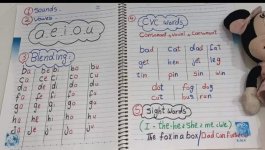 ① Sounds.
② Vowls
a.e.i.o.u
③ Blending:
ba be bi bo bu
ca ce ci co cu
da de di do du
fa fe fi fo fu
ga ge gi go gu
ha he hi ho hu
Ja je ji jo ju
④ CVC words
Consonant, vowel, consonant
bad cat dad fat
get hen jet leg
tin pin sin win
dot fog dog
cut bus run
⑤ Sight words
(I - The - he & she & me & we)
The fox in a box / Dad Can Fan